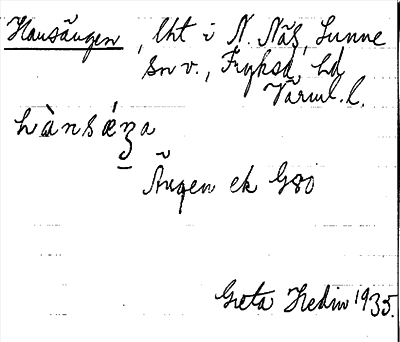 Hansängen, lht i N. Näs, Sunne
sn v., Fryksd. hd
Värml. l.
hànsǽŋa
Ängen ek G80
Greta Hedin 1935.